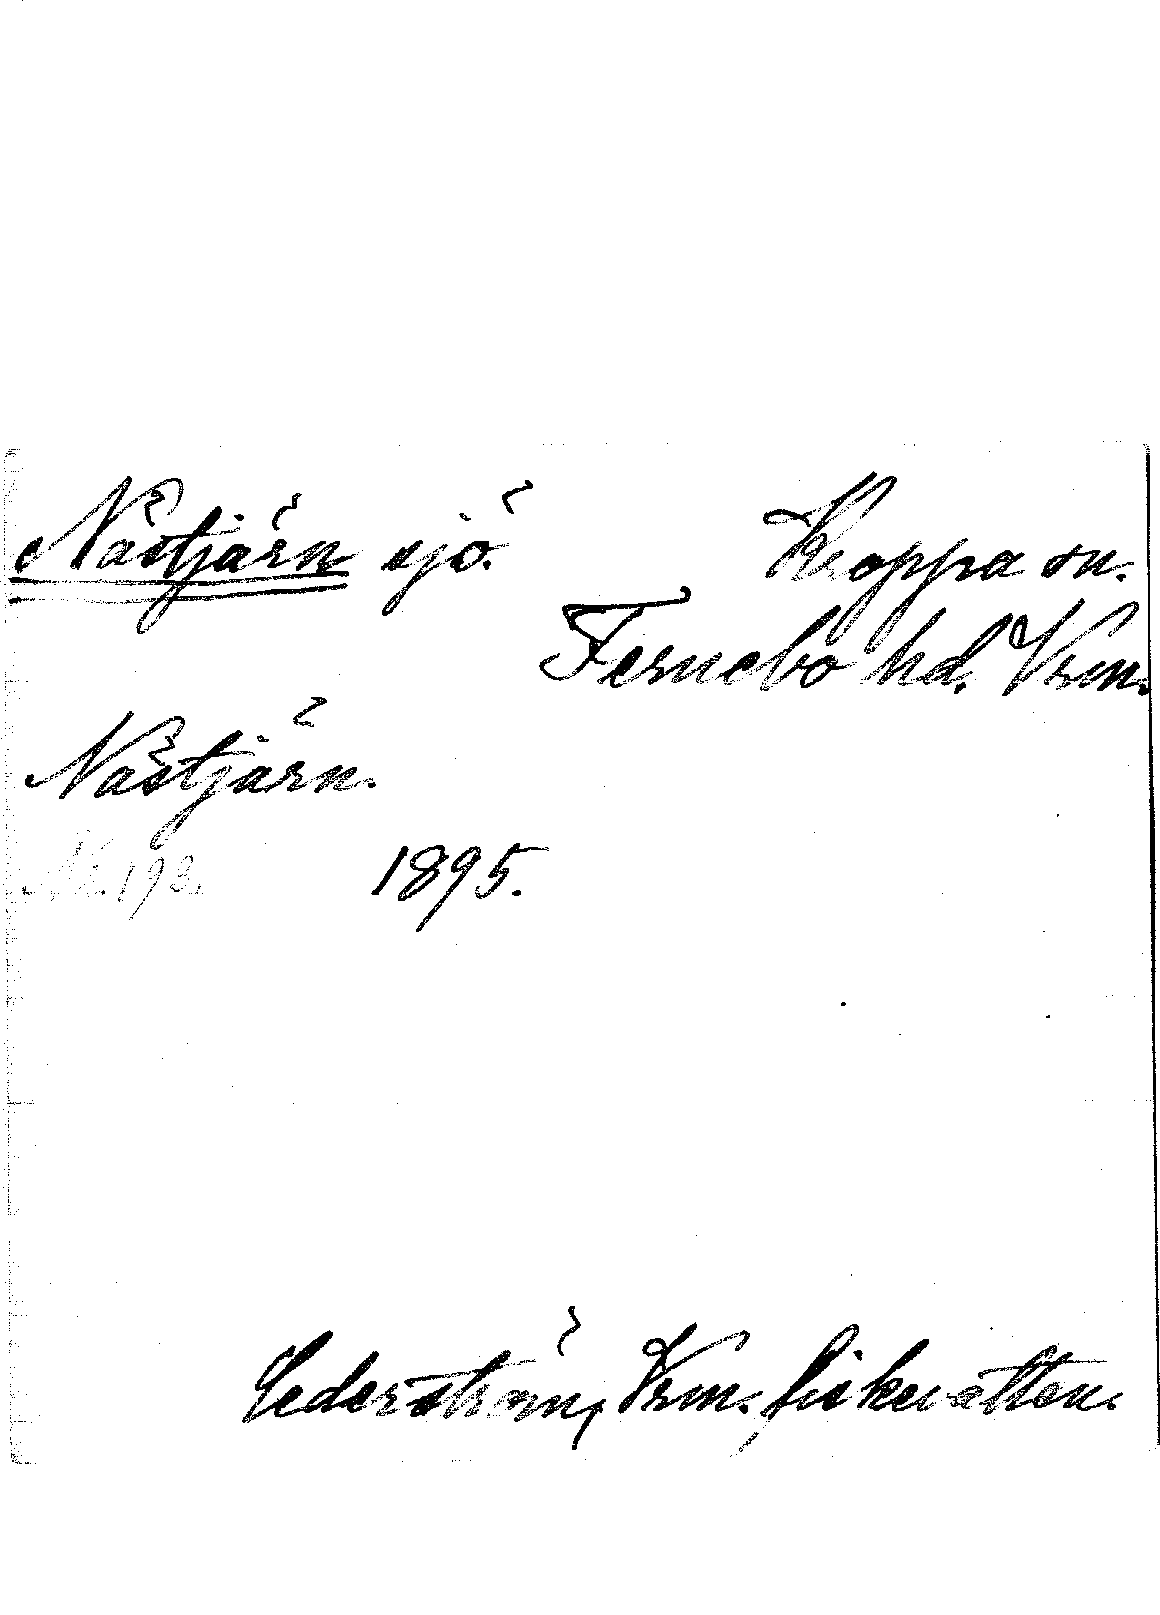 Nästjärn sjö.
Kroppa sn.
Fernebo hd. Vrm.
Nästjärn.
193.
1895.
Cederström, Vrm. fiskevatten.